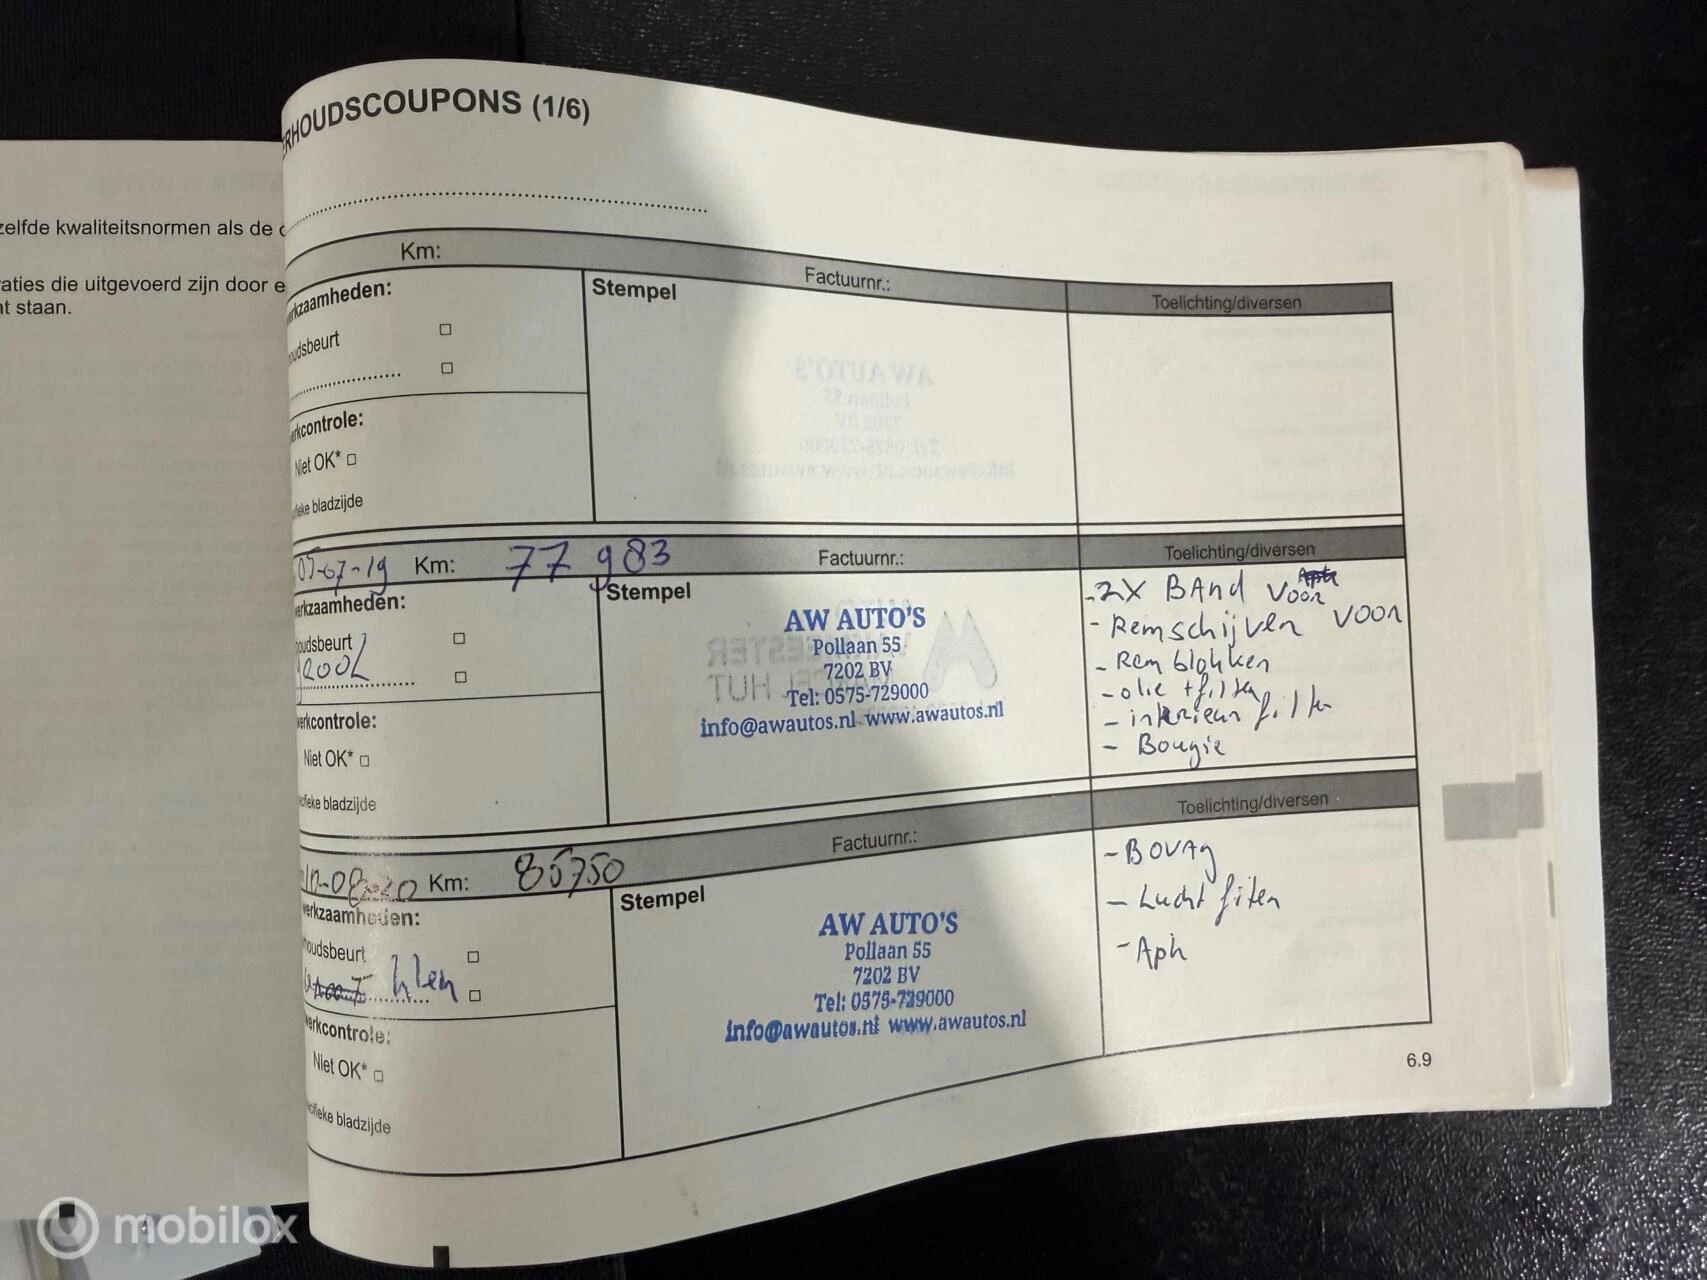 zelfde kwaliteitsnormen als de
aties die uitgevoerd zijn door
staan.
ERHOUDSCOUPONS (1/6)
Km:
Factuurnr.:
Toelichting/diversen
erkzaamheden:
Stempel
oudsbeurt
erkcontrole:
Niet OK*
fieke bladzijde
05-07-19 Km: 77 983
Factuurnr.:
Toelichting/diversen
erkzaamheden:
Stempel
oudsbeurt
AW AUTO'S
Pollaan 55
7202 BV
Tel: 0575-729000
info@awautos.nl www.awautos.nl
- 2X BAnd Voor
- Remschijven VOOR
- Remblokken
- olie + filter
- interieur filter
- Bougie
erkcontrole:
Niet OK*
cifieke bladzijde
Km: 85750
Factuurnr.:
Toelichting/diversen
erkzaamheden:
Stempel
houdsbeurt
klein
AW AUTO'S
Pollaan 55
7202 BV
Tel: 0575-729000
info@awautos.nl www.awautos.nl
- BOVAG
- Lucht filter
- Apk
erkcontrole:
Niet OK*
cifieke bladzijde
6.9
mobilox